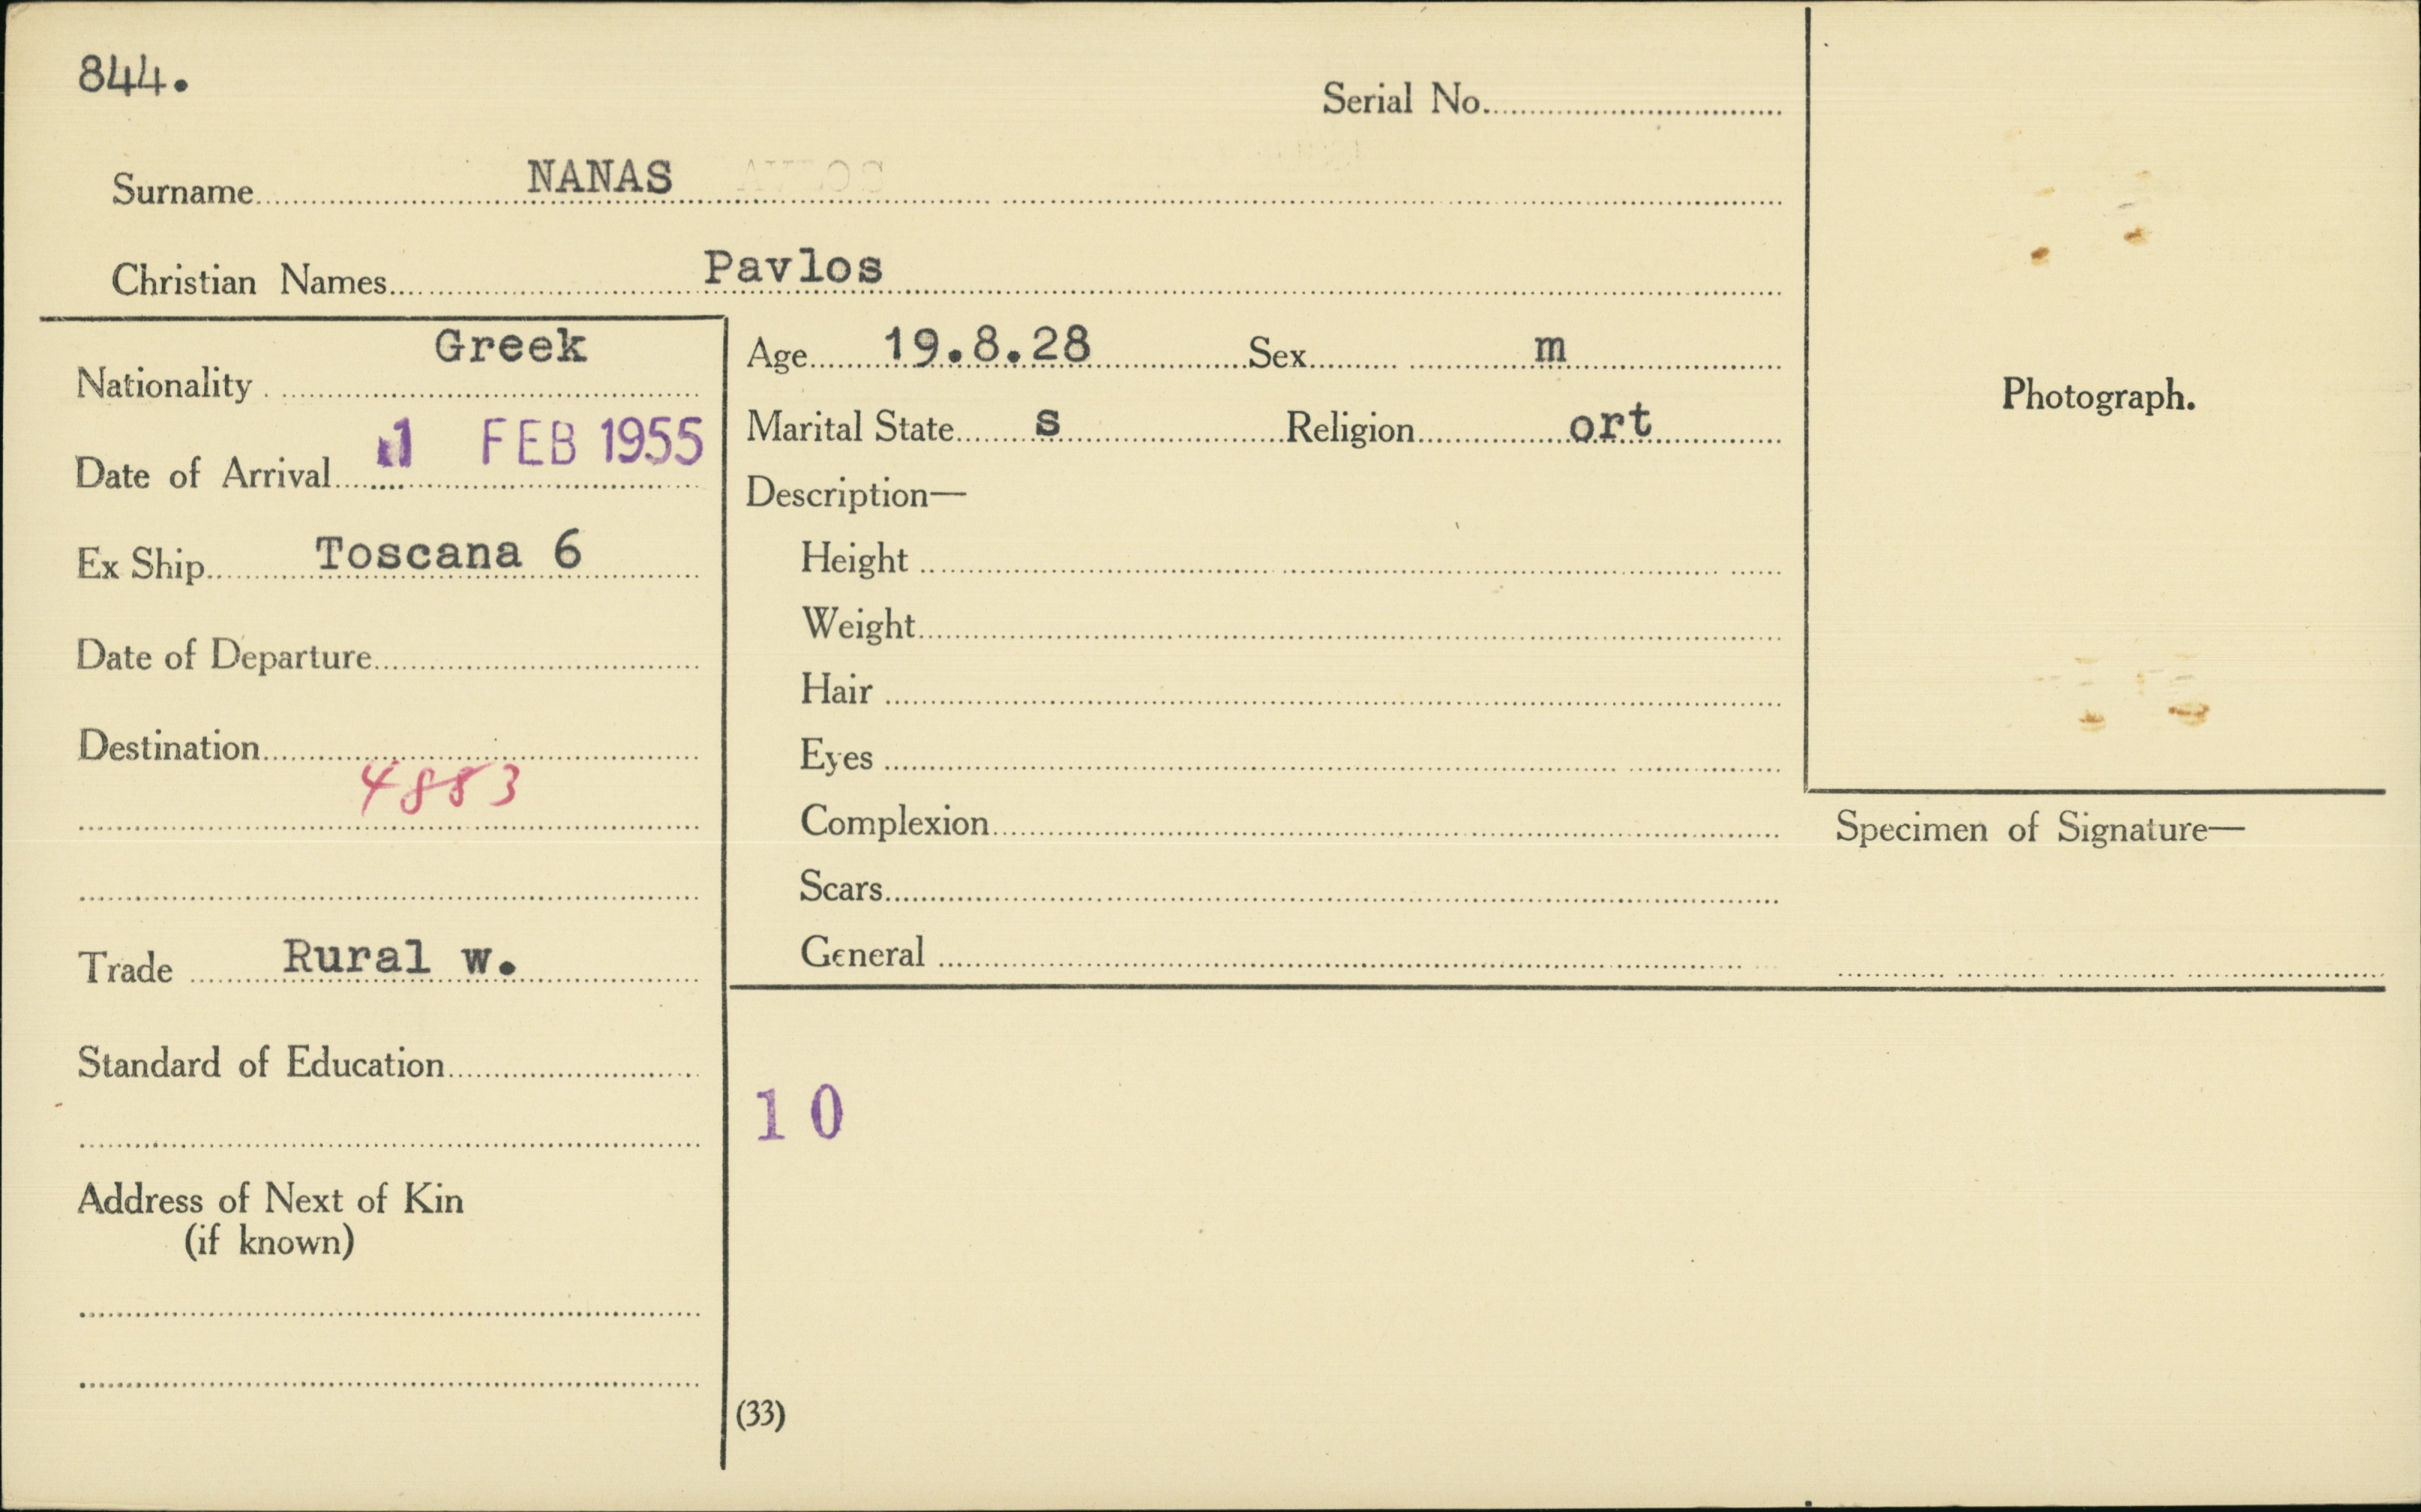 844.
Serial No.
Surname NANAS
Christian Names Pavlos
Nationality Greek
Date of Arrival 1 FEB 1955
Ex Ship Toscana 6
Date of Departure
Destination
4883
Trade Rural w.
Standard of Education
Address of Next of Kin
(if known)
Age 19.8.28 Sex m
Marital State s Religion ort
Description—
Height
Weight
Hair
Eyes
Complexion
Scars
General
Photograph.
Specimen of Signature—
10
(33)